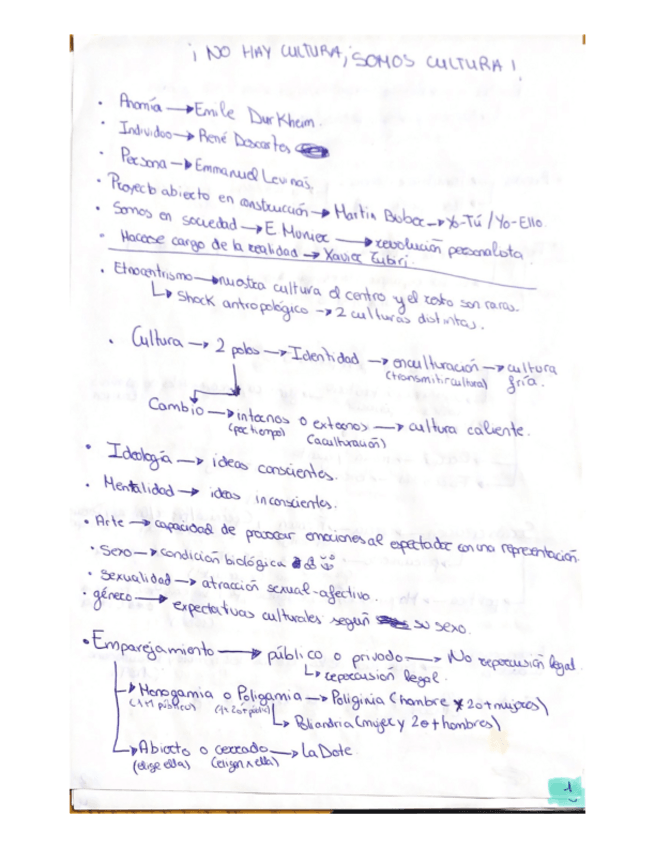 ¡NO HAY CULTURA, ¡SOMOS CULTURA!
· Anomía → Emile Durkheim.
· Individuo → René Descartes
· Persona → Emmanuel Levinas.
· Proyecto abierto en construcción → Martin Buber → Yo-Tú / Yo-Ello.
· Somos en sociedad → E Mounier → revolución personalista.
· Hacerse cargo de la realidad → Xavier Zubiri.
· Etnocentrismo → nuestra cultura el centro y el resto son raras.
↳ Shock antropológico → 2 culturas distintas.
· Cultura → 2 polos → Identidad → enculturación → cultura fría.
(transmitir cultura)
Cambio → internos o externos → cultura caliente.
(por tiempo) (aculturación)
· Ideología → ideas conscientes.
· Mentalidad → ideas inconscientes.
· Arte → capacidad de provocar emociones al espectador con una representación.
· Sexo → condición biológica
· Sexualidad → atracción sexual-afectivo.
· género → expectativas culturales según su sexo.
· Emparejamiento → público o privado → No repercusión legal.
↳ repercusión legal.
→ Monogamia o Poligamia → Poliginia (hombre y 2 o + mujeres)
(1+1 público)
↳ Poliandria (mujer y 2 o + hombres)
→ Abierto o cerrado → La Dote.
(elige ella) (eligen x ella)
1